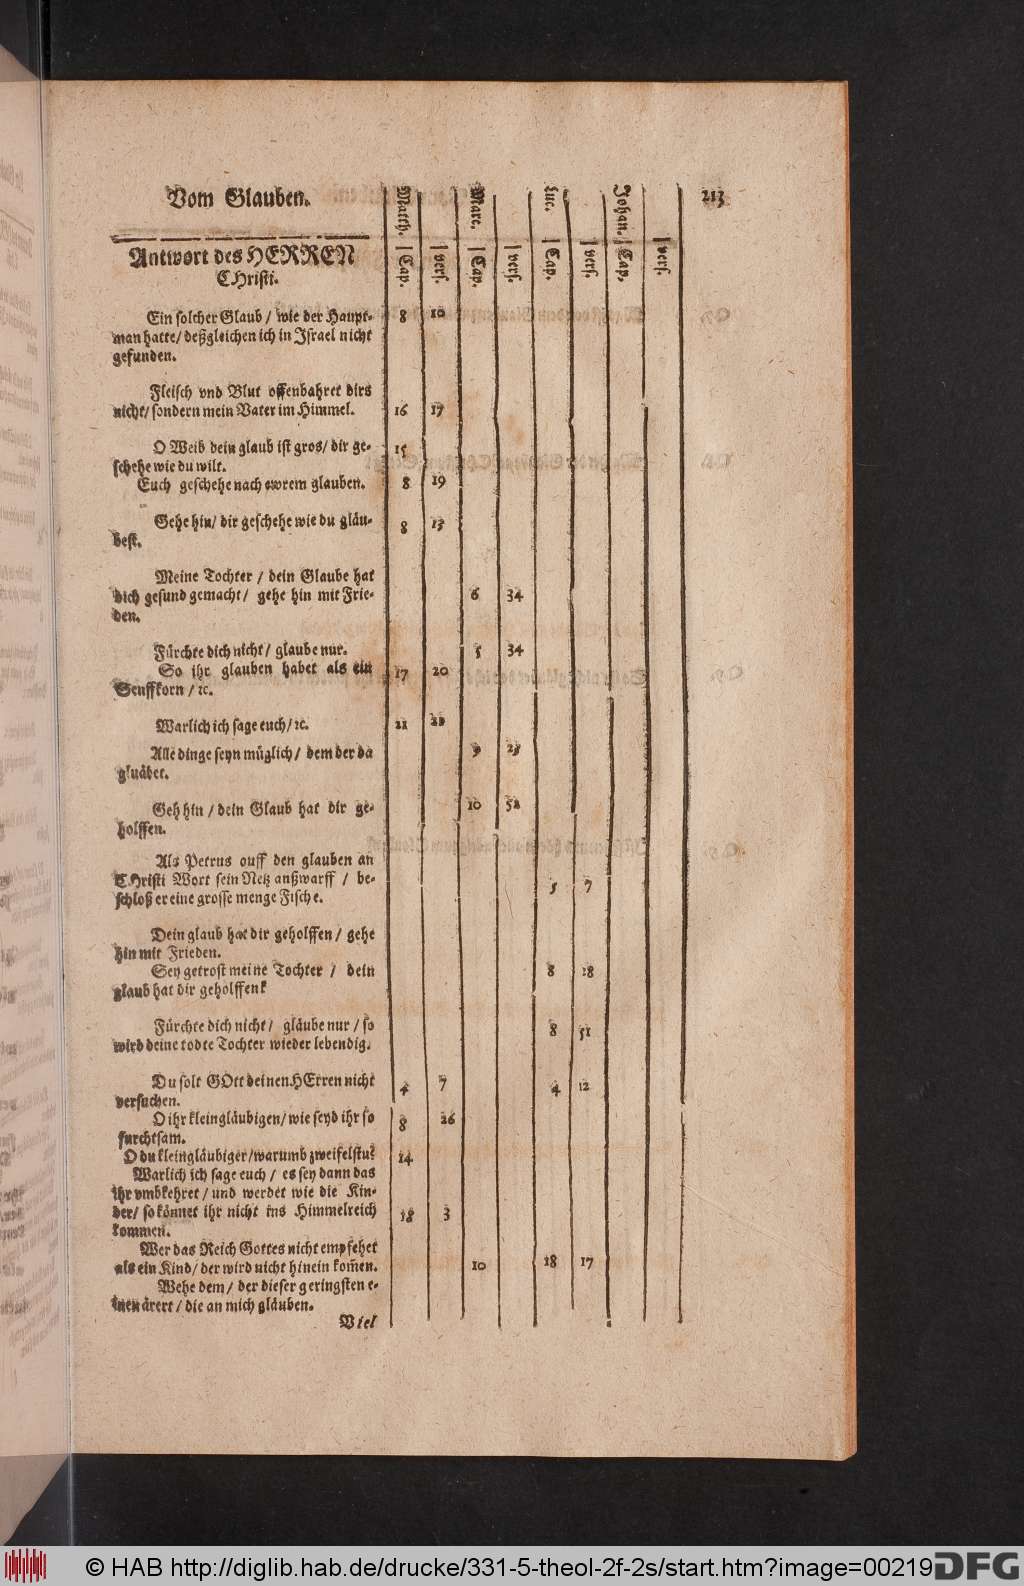 Vom Glauben.
213
Matth. Marc. Luc. Johan.
Cap. vers. Cap. vers. Cap. vers. Cap. vers.
Antwort des HERREN
CHristi.
Ein solcher Glaub / wie der Haupt- 8 10
man hatte / deßgleichen ich in Israel nicht
gefunden.
Fleisch vnd Blut offenbahret dirs
nicht / sondern mein Vater im Himmel. 16 17
O Weib dein glaub ist gros / dir ge- 15
schehe wie du wilt.
Euch geschehe nach ewrem glauben. 8 19
Gehe hin / dir geschehe wie du gläu- 8 13
best.
Meine Tochter / dein Glaube hat
dich gesund gemacht / gehe hin mit Frie- 6 34
den.
Fürchte dich nicht / glaube nur. 5 34
So ihr glauben habet als ein 17 20
Senffkorn / ꝛc.
Warlich ich sage euch / ꝛc. 21 22
Alle dinge seyn müglich / dem der da 9 23
gluäbet.
Geh hin / dein Glaub hat dir ge- 10 52
holffen.
Als Petrus ouff den glauben an
CHristi Wort sein Netz außwarff / be- 5 7
schloß er eine grosse menge Fische.
Dein glaub hat dir geholffen / gehe
hin mit Frieden.
Sey getrost meine Tochter / dein 8 18
glaub hat dir geholffenk
Fürchte dich nicht / gläube nur / so 8 51
wird deine todte Tochter wieder lebendig.
Du solt GOtt deinen HErren nicht 4 7 4 12
versuchen.
O ihr kleingläubigen / wie seyd ihr so 8 26
furchtsam.
O du kleingläubiger / warumb zweifelstu? 14
Warlich ich sage euch / es sey dann das
ihr vmbkehret / und werdet wie die Kin-
der / so könnet ihr nicht ins Himmelreich 18 3
kommen.
Wer das Reich Gottes nicht empfehet
als ein Kind / der wird nicht hinein kom̃en. 10 18 17
Wehe dem / der dieser geringsten e-
inen ärert / die an mich gläuben.
Viel
© HAB http://diglib.hab.de/drucke/331-5-theol-2f-2s/start.htm?image=00219
DFG